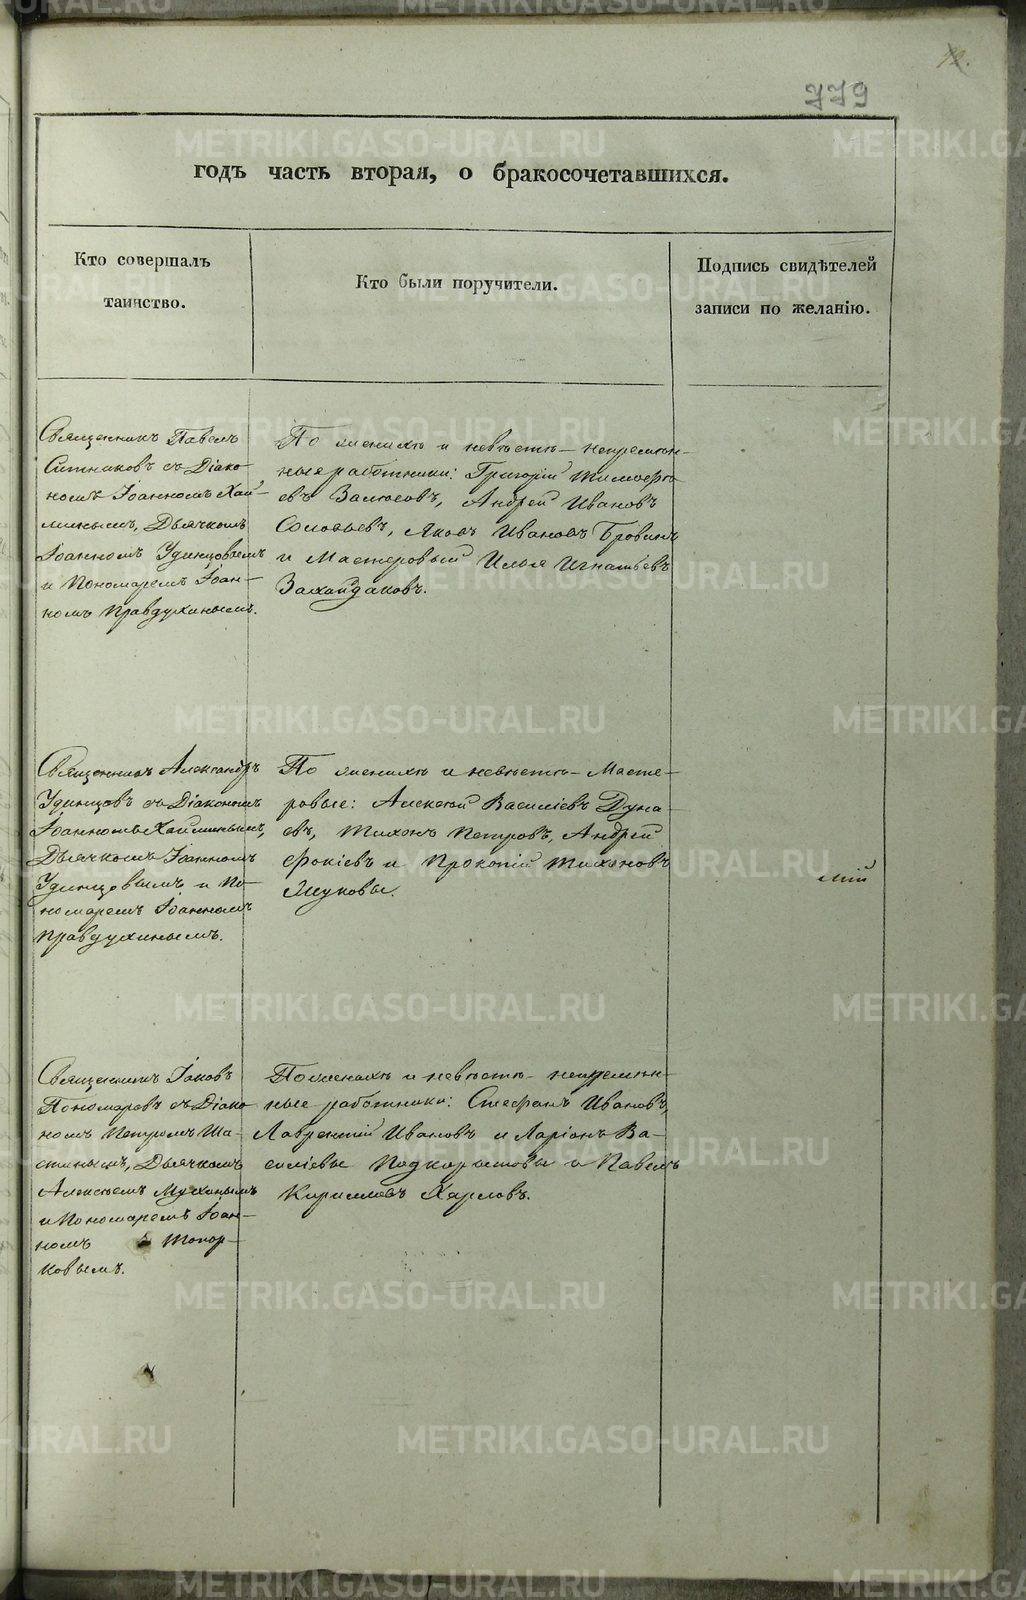 779
годъ часть вторая, о бракосочетавшихся.
Кто совершалъ
таинство.
Кто были поручители.
Подпись свидѣтелей
записи по желанію.
Священникъ Павелъ
Ситниковъ съ Діако-
номъ Іоанномъ Хай-
минымъ, Дьячкомъ
Іоанномъ Удинцовымъ
и Пономаремъ Іоан-
номъ Правдухинымъ.
По женихѣ и невѣстѣ – непремѣн-
ные работники: Григорій Тимофѣ-
евъ Андрей Ивановъ
Соловьевъ, Яковъ Ивановъ Бровинъ
и Мастеровый Илья Игнатьевъ
Захайдаковъ.
Священникъ Александръ
Удинцовъ съ Діакономъ
Іоанномъ Хайминымъ,
Дьячкомъ Іоанномъ
Удинцовымъ и По-
номаремъ Іоанномъ
Правдухинымъ.
По женихѣ и невѣстѣ – Масте-
ровые: Алексѣй Василіевъ Дуна-
евъ, Тихонъ Петровъ, Андрей
Фокіевъ и Прокопій Тихоновъ
Жуковы.
мій
Священникъ Іаковъ
Пономаревъ съ Діако-
номъ Петромъ Ша-
Дьячкомъ
Алексѣемъ Мухинымъ
и Пономаремъ Іоан-
номъ Топор-
ковымъ.
По женихѣ и невѣстѣ – непремѣн-
ные работники: Стефанъ Ивановъ,
Лаврентій Ивановъ и Ларіонъ Ва-
силіевы Подкорытовы и Павелъ
Кирилловъ Харловъ.
METRIKI.GASO-URAL.RU